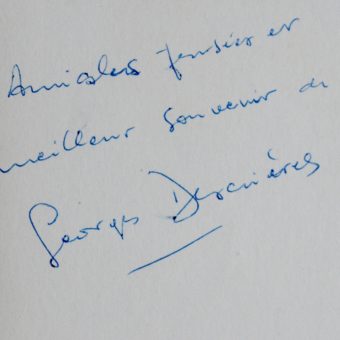 Amicales pensées et
meilleur souvenir de
Georges Descrières